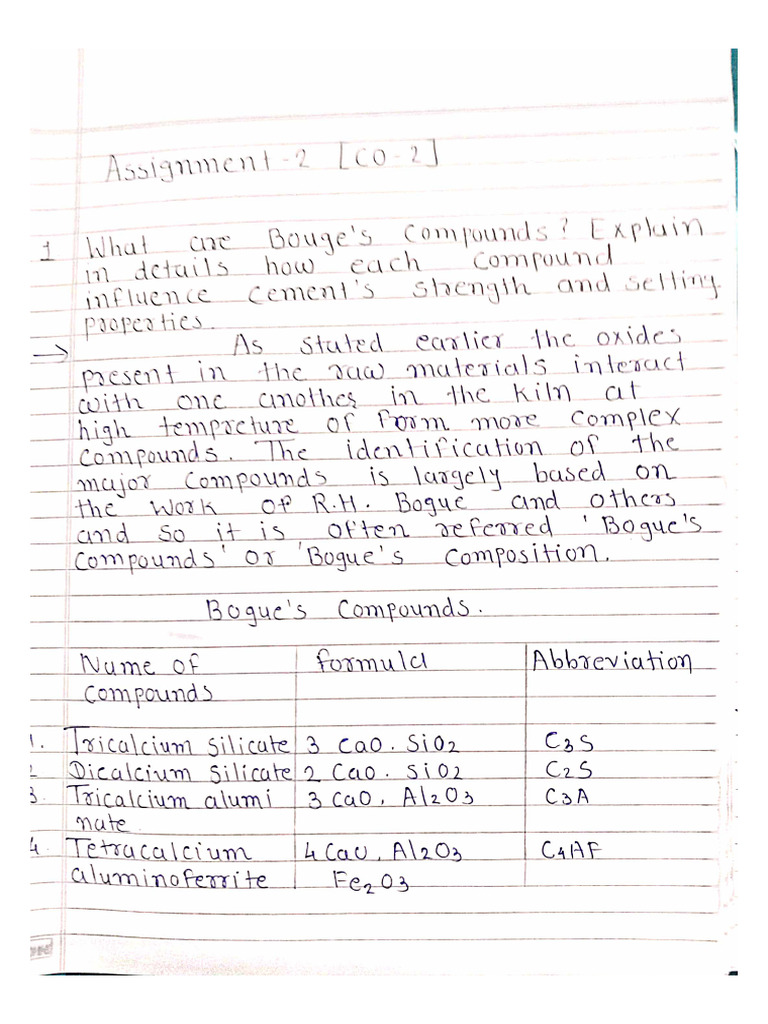 Assignment-2 [CO-2]
1 What are Bouge's Compounds? Explain
in details how each compound
influence cement's strength and setting
properties.
→ As stated earlier the oxides
present in the raw materials interact
with one another in the kiln at
high temprcture of form more complex
compounds. The identification of the
major compounds is largely based on
the work of R.H. Bogue and others
and so it is often referred 'Bogue's
Compounds' or 'Bogue's Composition.
Bogue's Compounds.
Name of formula Abbreviation
compounds
1. Tricalcium silicate 3 CaO. SiO2 C3S
2 Dicalcium silicate 2 CaO. SiO2 C2S
3. Tricalcium alumi 3 CaO, Al2O3 C3A
nate.
4. Tetracalcium 4 CaO, Al2O3 C4AF
aluminoferrite Fe2O3